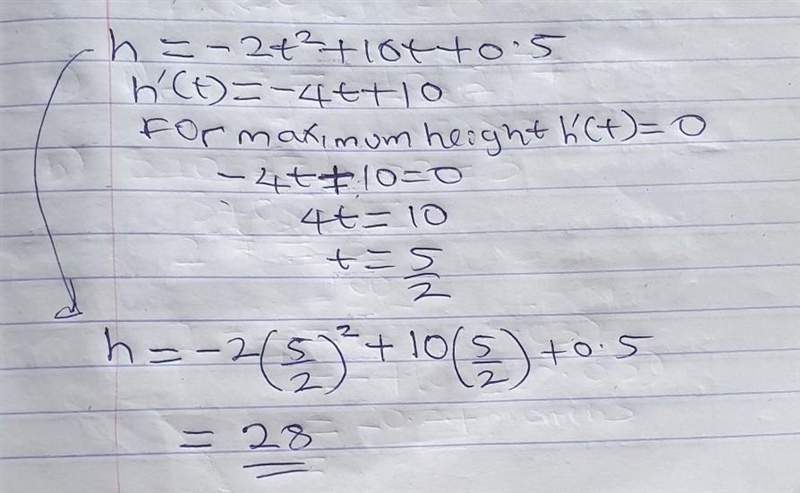 h = -2t² + 10t + 0.5
h'(t) = -4t + 10
For maximum height h'(t) = 0
-4t + 10 = 0
4t = 10
t = 5/2
h = -2(5/2)² + 10(5/2) + 0.5
= 28